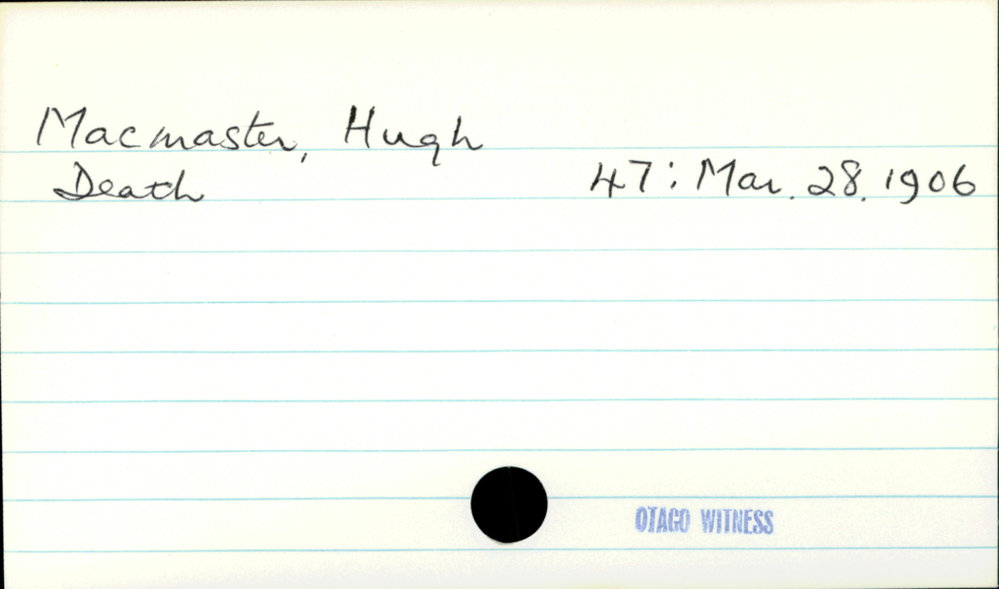 Macmaster, Hugh
Death 47: Mar. 28. 1906
OTAGO WITNESS